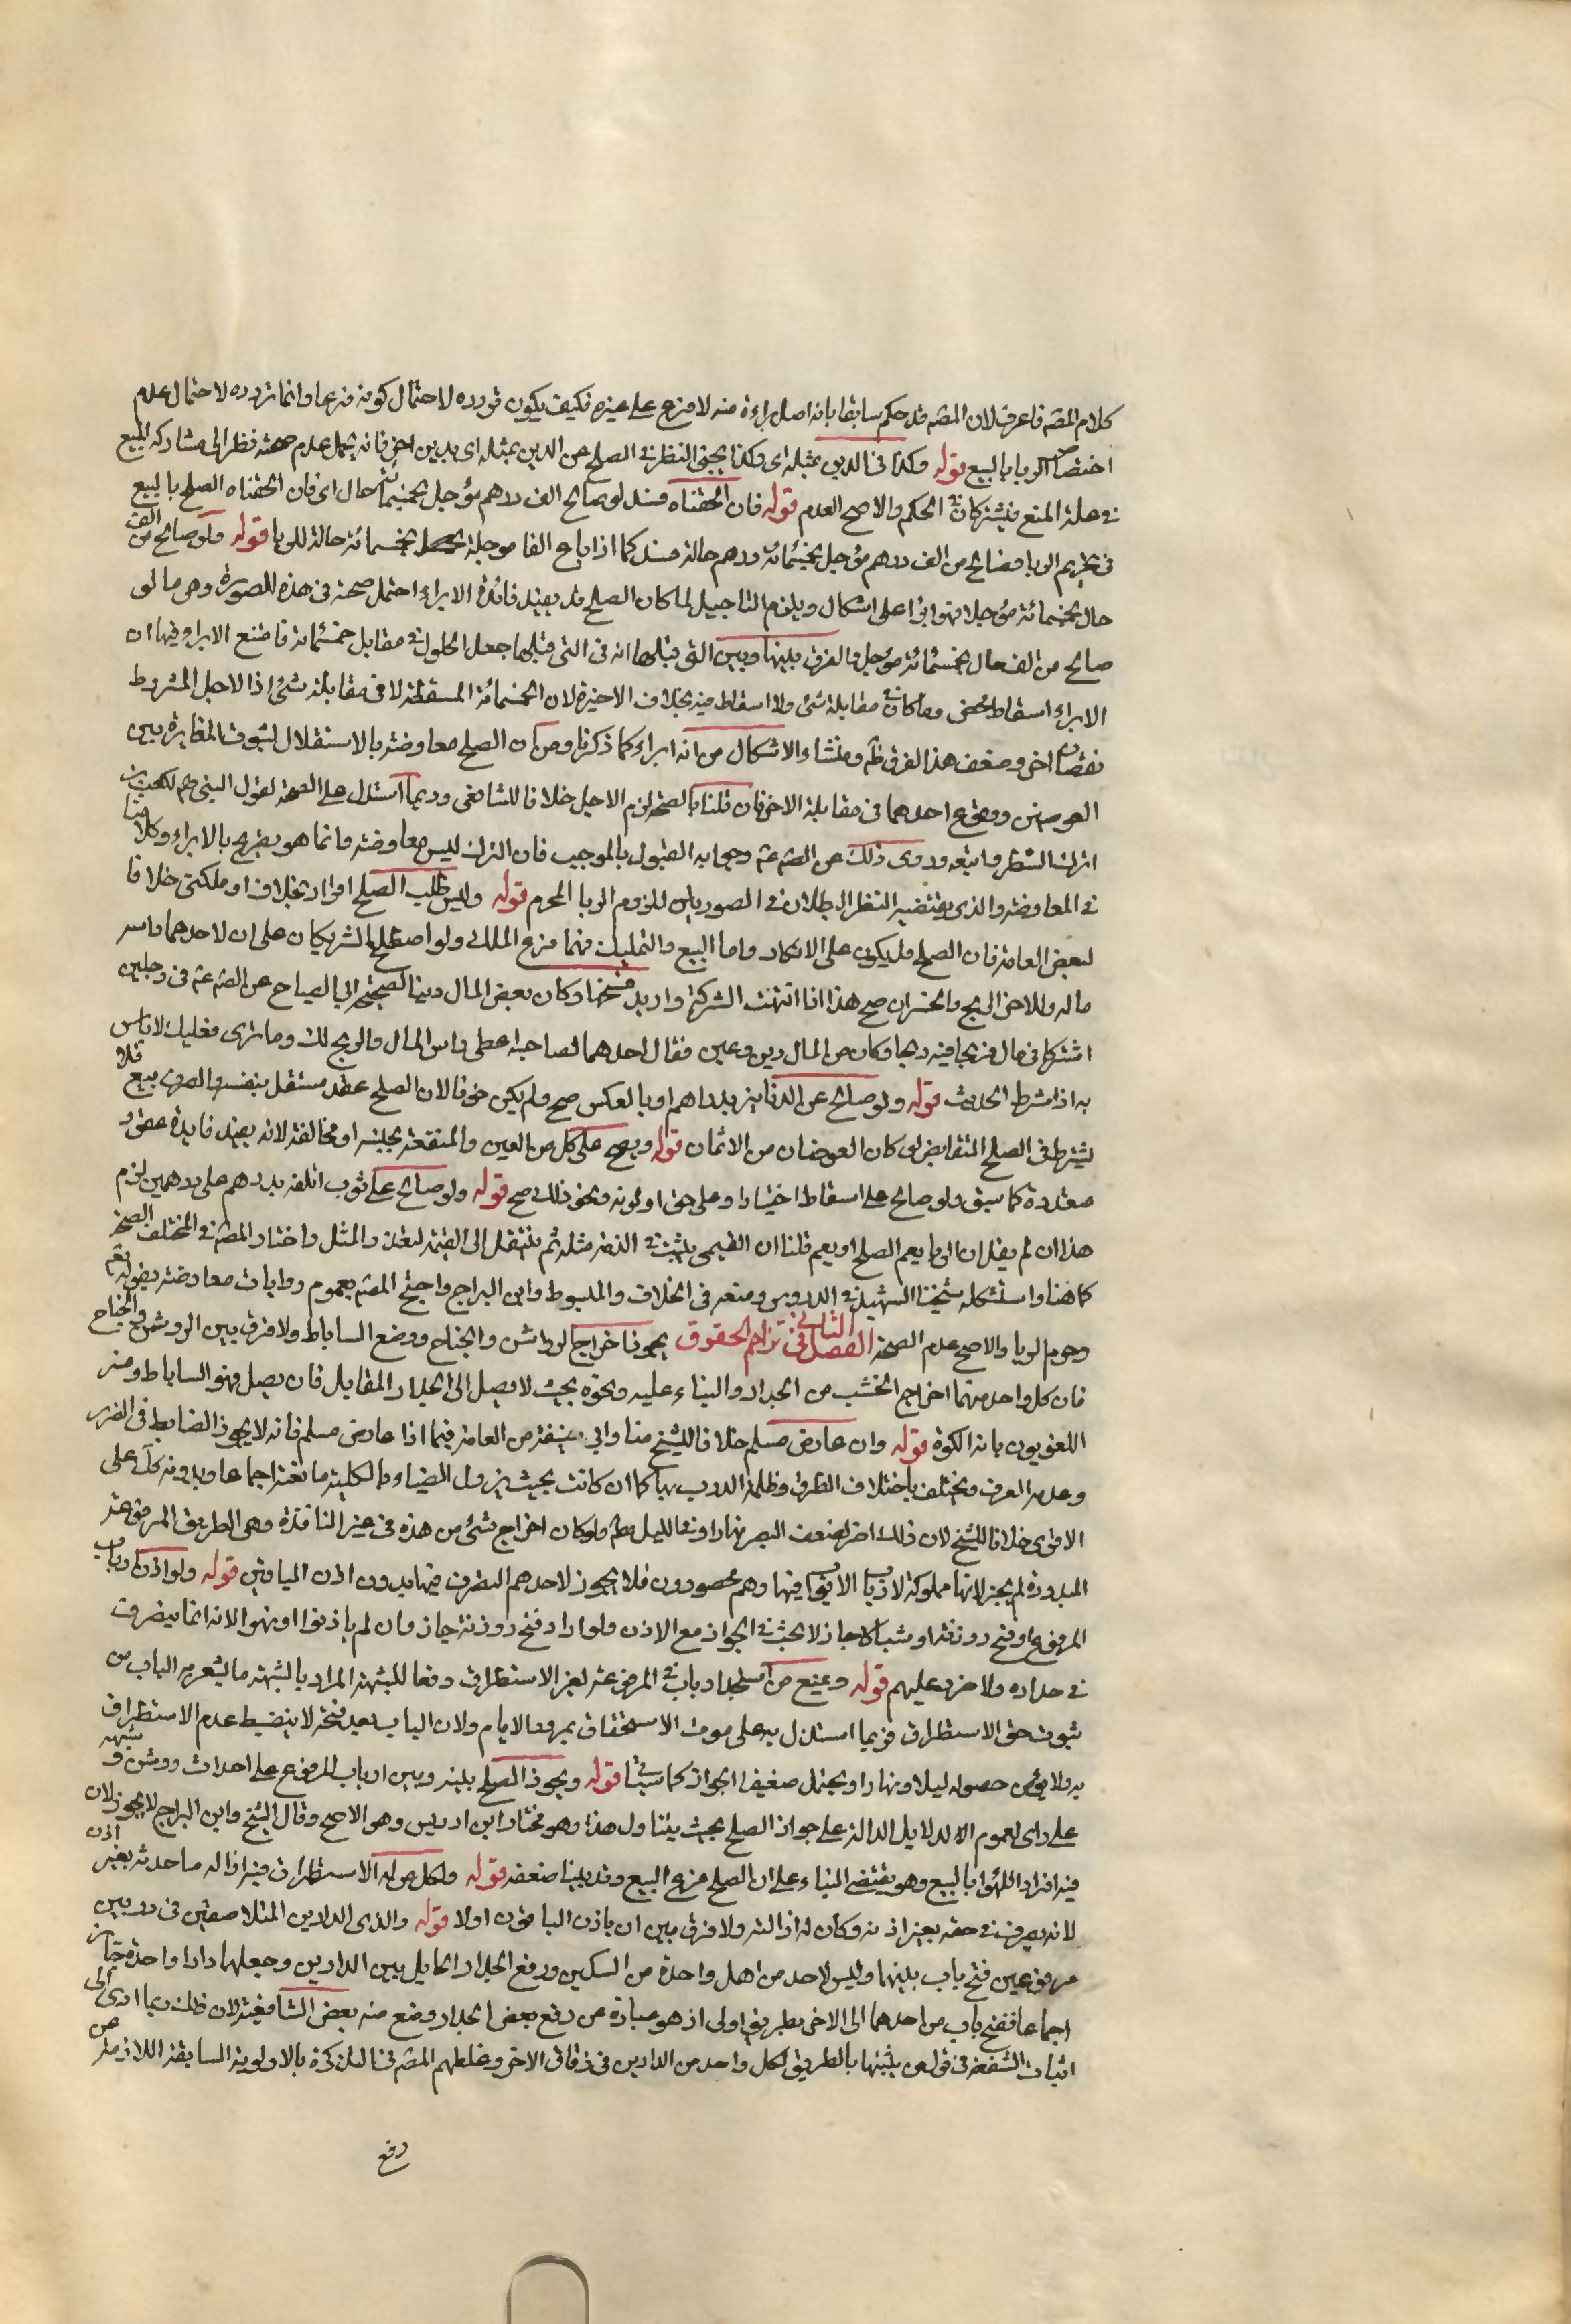 كلام المصّه فاعرف لان المصّه قد حكم سابقا بانه اصل براءة منه لا فرع على غيره فكيف يكون تردده لاحتمال كونه فرعا وانما تردده لاحتمال عدم
اختصاص الربا بالبيع قوله وكذا في الدين بمثله اى وكذا يجئ النظر في الصلح عن الدين بمثله اى بدين اخر فانه يحتمل عدم صحته نظرا الى مشاركه البيع
في علة المنع فيشتركان في الحكم والاصح العدم قوله فان الحقناه فسد لو صالح الف درهم مؤجل بخمسمائة حال اى فان الحقناه الصلح بالبيع
في تحريم الربا فصالح من الف درهم مؤجل بخمسمائة درهم حالة فسد كما اذا باع الفا موجلة بخمسمائة حالة للربا قوله ولو صالح من الف
حال بخمسمائة مؤجلا فهو ابرأ على اشكال ويلزم التاجيل لما كان الصلح قد يفيد فائدة الابراء احتمل صحته في هذه الصورة وهى ما لو
صالح من الف حال بخمسمائة مؤجل والفرق بينها وبين التي قبلها انه في التى قبلها جعل الحلول في مقابل خمسمائة فامتنع الابراء فيها ان
الابراء اسقاط محض وما كان في مقابلة شئ ولا اسقاط فيه بخلاف الاخيرة لان الخمسمائة المسقطة لا في مقابلة شئ اذا لاجل المشروط
نقصان اخر وضعف هذا الفرق ظم ومنشاء الاشكال من انه ابراء كما ذكرنا ومن ان الصلح معاوضة بالاستقلال لثبوت المغايرة بين
العوضين ووقوع احدهما في مقابلة الاخر فان قلنا بالصحة لزم الاجل خلافا للشافعى وربما استدل على الصحة لقول النبى صم لكعب بن
اترك الشطر واتبعه وروى ذلك عن الصّم عم وجوابه القبول بالموجب فان الترك ليس معاوضه وانما هو يصرح بالابراء وكلامنا
في المعاوضة والذى يقتضيه النظر البطلان في الصورتين للزوم الربا المحرم قوله وليس طلب الصلح اقرار بخلاف او ملكنى خلافا
لبعض العامة فان الصلح قد يكون على الانكار واما البيع والتمليك فهما فرع الملك ولو اصطلح الشريكان على ان لاحدهما راس
ماله وللاخر الربح والخسران صح هذا اذا انتهت الشركة واريد فسخها وكان بعض المال دينا لصحيحة ابى الصباح عن الصّم عم في رجلين
اشتركا في مال فربحا فيه ربحا وكان من المال دين وعين فقال احدهما لصاحبه اعطى راس المال والربح لك وما ترى فعليك لا باس
به اذا شرط الحديث قوله ولو صالح عن الدنانير بدراهم او بالعكس صح ولم يكن صرفا لان الصلح عقد مستقل بنفسه والصرف بيع فلا
يشترط في الصلح التقابض لو كان العوضان من الاثمان قوله ويصح على كل من العين والمنفعة بجنسه او مخالفة لانه يفيد فايدة عقود
متعددة كما سبق ولو صالح على اسقاط اخيارا وعلى حق اولويه ونحو ذلك صح قوله ولو صالح على ثوب اتلفه بدرهم على درهمين لزم
هذا ان لم يقل ان الربا يعم الصلح او يعم قلنا ان القيمى يثبت في الذمه مثله ثم ينتقل الى القيمة لتعذر المثل واختار المصّه في المختلف الصحة
كما هنا واستشكله شيخنا الشهيد في الدروس ومنعه في الخلاف والمبسوط وابن البراج واحتج المصّه بعموم روايات معاوضته بقوله تعم
وحرم الربا والاصح عدم الصحة الفصل الثاني في تزاحم الحقوق يجوز اخراج الرواشن والجناح ووضع الساباط ولا فرق بين الروشن والجناح
فان كل واحد منهما اخراج الخشب من الجدار والبناء عليه ونحوه بحيث لا يصل الى الجدار المقابل فان يصل فهو الساباط وفسر
اللغويون بانه الكوة قوله وان عارض مسلم خلافا للشيخ منا وابى حنيفة من العامة فيما اذا عارض مسلم فانه لا يجوز الضابط في الضرر
وعدمه العرف ويختلف باختلاف الطرق وظلمة الدرب بها كما ان كانت بحيث يزول الضياء بالكلية مانعة اجماعا وبدونه كل على
الاقوى خلافا للشيخ لان ذلك اضر لضعف البصر نهارا وفي الليل مطم ولو كان اخراج شئ من هذه في غير النافذة وهى الطريق المرفوعة
المسدودة لم يجز لانها مملوكة لارباب الابواب فيها وهم محصورون فلا يجوز لاحدهم التصرف فيها بدون اذن الباقين قوله ولو اذن ارباب
المرفوع او فتح روزنة او شباك جاز لا بحث في الجواز مع الاذن ولو اراد فتح روزنة جاز وان لم ياذنوا او نهوا لانه انما يتصرف
في جداره ولا ضرر عليهم قوله ويمنع من استجداد باب في المرفوعة لغير الاستطراق دفعا للشبهة المراد بالشبهة ما يشعر به الباب من
ثبوت حق الاستطراق فربما استدل به على موت الاستحقاق بمرور الايام ولان الباب بعد فتحه لا ينضبط عدم الاستطراق
به ولا يؤمن حصوله ليلا ونهارا ويحتمل ضعيفا الجواز كما سياتى قوله ويجوز الصلح بينه وبين ارباب المرفوع على احداث روشن وشبهه
على راى لعموم الا الدلايل الدالة على جواز الصلح بحيث يتناول هذا وهو مختار ابن ادريس وهو الاصح وقال الشيخ وابن البراج لا يجوز لان
فيه افراد اللهوا بالبيع وهو يقتضى البناء على ان الصلح فرع البيع وقد بينا ضعفه قوله ولكل من له الاستطراق فيه ازالة ما احدثه بغير اذن
لانه تصرف في حقه بغير اذنه وكان له ازالته ولا فرق بين ان ياذن الباقون اولا قوله والذى الدارين المتلاصقتين في دربين
مرفوعين فتح باب بينهما وليس لاحد من اهل واحدة من السكين ورفع الجدار الحايل بين الدارين وجعلهما دارا واحدة جائز
اجماعا ففتح باب من احدهما الى الاخر بطريق اولى اذ هو عبارة عن رفع بعض الجدار ومنع منه بعض الشافعية لان ذلك ربما ادى الى
اثبات الشفعة في قول من يثبتها بالطريق لكل واحد من الدارين في زقاق الاخر وغلطهم المصّه في التذكرة بالاولوية السابقة اللازمة من
رفع